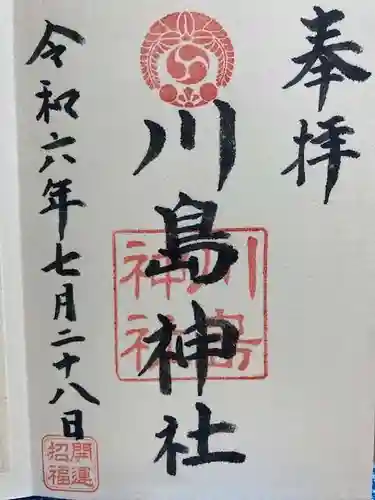 奉拝
川島神社
川島神社
令和六年七月二十八日
開運招福